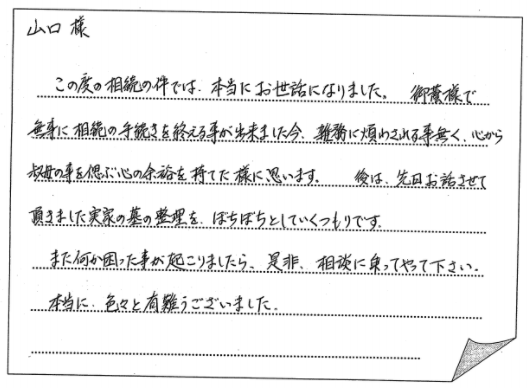 山口様
この度の相続の件では、本当にお世話になりました。 御蔭様で
無事に相続の手続きを終える事が出来ました今、雑務に煩わされる事無く、心から
叔母の事を偲ぶ心の余裕を持てた様に思います。 後は、先日お話させて
頂きました実家の墓の整理を、ぼちぼちとしていくつもりです。
また何か困った事が起こりましたら、是非、相談に乗ってやって下さい。
本当に、色々と有難うございました。